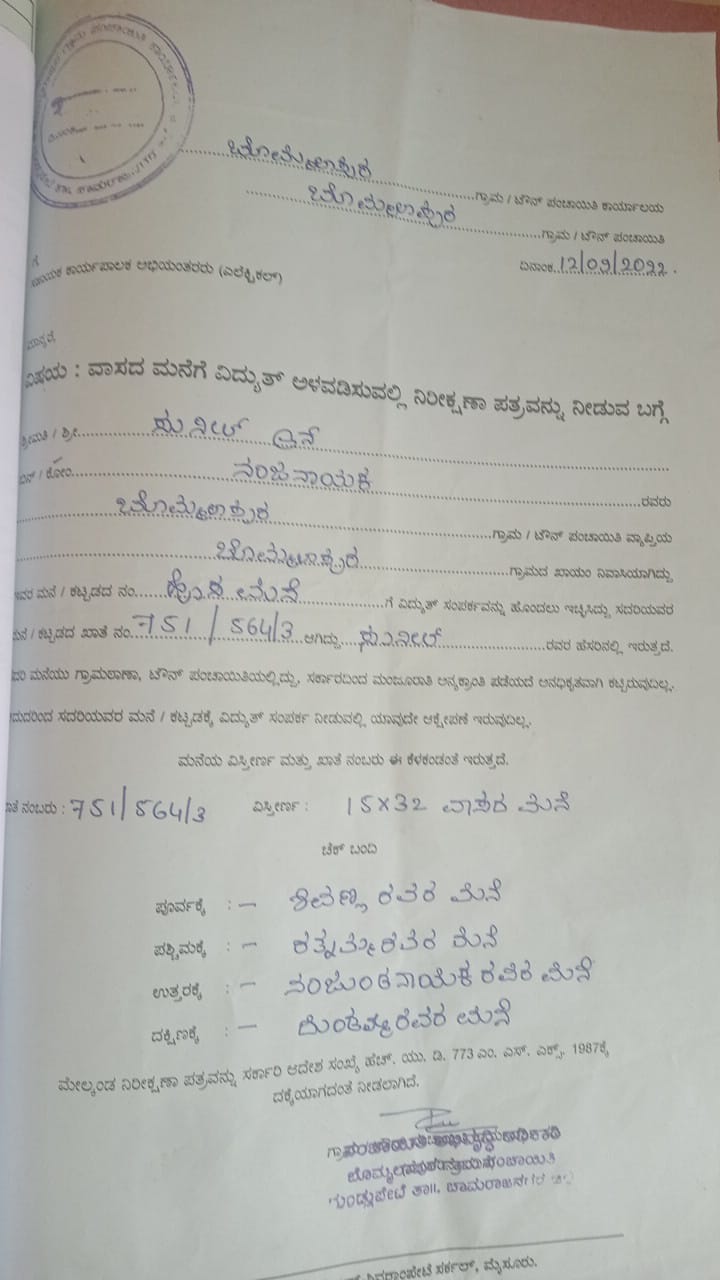 ಬೊಮ್ಮಲಾಪುರ ಗ್ರಾಮ / ಟೌನ್ ಪಂಚಾಯಿತಿ ಕಾರ್ಯಾಲಯ
ಬೊಮ್ಮಲಾಪುರ ಗ್ರಾಮ / ಟೌನ್ ಪಂಚಾಯಿತಿ
ದಿನಾಂಕ 12/09/2022.
ಗೆ
ಕಾರ್ಯಪಾಲಕ ಅಭಿಯಂತರರು (ಎಲೆಕ್ಟ್ರಿಕಲ್)
ಮಾನ್ಯರೆ,
ವಿಷಯ : ವಾಸದ ಮನೆಗೆ ವಿದ್ಯುತ್ ಅಳವಡಿಸುವಲ್ಲಿ ನಿರೀಕ್ಷಣಾ ಪತ್ರವನ್ನು ನೀಡುವ ಬಗ್ಗೆ
ಶ್ರೀಮತಿ / ಶ್ರೀ ಸುನೀಲ್ ಎನ್
ಬಿನ್ / ಕೋಂ ನಂಜನಾಯಕ ರವರು
ಬೊಮ್ಮಲಾಪುರ ಗ್ರಾಮ / ಟೌನ್ ಪಂಚಾಯಿತಿ ವ್ಯಾಪ್ತಿಯ
ಬೊಮ್ಮಲಾಪುರ ಗ್ರಾಮದ ಖಾಯಂ ನಿವಾಸಿಯಾಗಿದ್ದು
ಇವರ ಮನೆ / ಕಟ್ಟಡದ ನಂ. ಹೊಸ ಮನೆ ಗೆ ವಿದ್ಯುತ್ ಸಂಪರ್ಕವನ್ನು ಹೊಂದಲು ಇಚ್ಛಿಸಿದ್ದು ಸದರಿಯವರ
ಮನೆ / ಕಟ್ಟಡದ ಖಾತೆ ನಂ. 751 / 564/3 ಆಗಿದ್ದು ಸುನೀಲ್ ರವರ ಹೆಸರಿನಲ್ಲಿ ಇರುತ್ತದೆ.
ಮನೆಯು ಗ್ರಾಮಠಾಣಾ, ಟೌನ್ ಪಂಚಾಯಿತಿಯಲ್ಲಿದ್ದು, ಸರ್ಕಾರದಿಂದ ಮಂಜೂರಾತಿ ಅನ್ಯಕ್ರಾಂತಿ ಪಡೆಯದೆ ಅನಧಿಕೃತವಾಗಿ ಕಟ್ಟಿರುವುದಿಲ್ಲ.
ಸದರಿಯವರ ಮನೆ / ಕಟ್ಟಡಕ್ಕೆ ವಿದ್ಯುತ್ ಸಂಪರ್ಕ ನೀಡುವಲ್ಲಿ ಯಾವುದೇ ಆಕ್ಷೇಪಣೆ ಇರುವುದಿಲ್ಲ.
ಮನೆಯ ವಿಸ್ತೀರ್ಣ ಮತ್ತು ಖಾತೆ ನಂಬರು ಈ ಕೆಳಕಂಡಂತೆ ಇರುತ್ತದೆ.
ಖಾತೆ ನಂಬರು : 751/564/3 ವಿಸ್ತೀರ್ಣ : 15x32 ವಾಸದ ಮನೆ
ಚೆಕ್ ಬಂದಿ
ಪೂರ್ವಕ್ಕೆ :— ಶಿವಣ್ಣ ರವರ ಮನೆ
ಪಶ್ಚಿಮಕ್ಕೆ :— ರತ್ನಮ್ಮ ರವರ ಮನೆ
ಉತ್ತರಕ್ಕೆ :— ನಂಜುಂಡನಾಯಕ ರವರ ಮನೆ
ದಕ್ಷಿಣಕ್ಕೆ :— ರವರ ಮನೆ
ಮೇಲ್ಕಂಡ ನಿರೀಕ್ಷಣಾ ಪತ್ರವನ್ನು ಸರ್ಕಾರಿ ಆದೇಶ ಸಂಖ್ಯೆ ಹೆಚ್. ಯು. ಡಿ. 773 ಎಂ. ಎಸ್. ಎಕ್ಸ್. 1987ಕ್ಕೆ
ದಕ್ಕೆಯಾಗದಂತೆ ನೀಡಲಾಗಿದೆ.
ಪಂಚಾಯಿತಿ ಅಭಿವೃದ್ಧಿ ಅಧಿಕಾರಿ
ಬೊಮ್ಮಲಾಪುರ ಗ್ರಾಮ ಪಂಚಾಯಿತಿ
ಗುಂಡ್ಲುಪೇಟೆ ತಾ||, ಚಾಮರಾಜನಗರ
ಸರ್ಕಲ್, ಮೈಸೂರು.